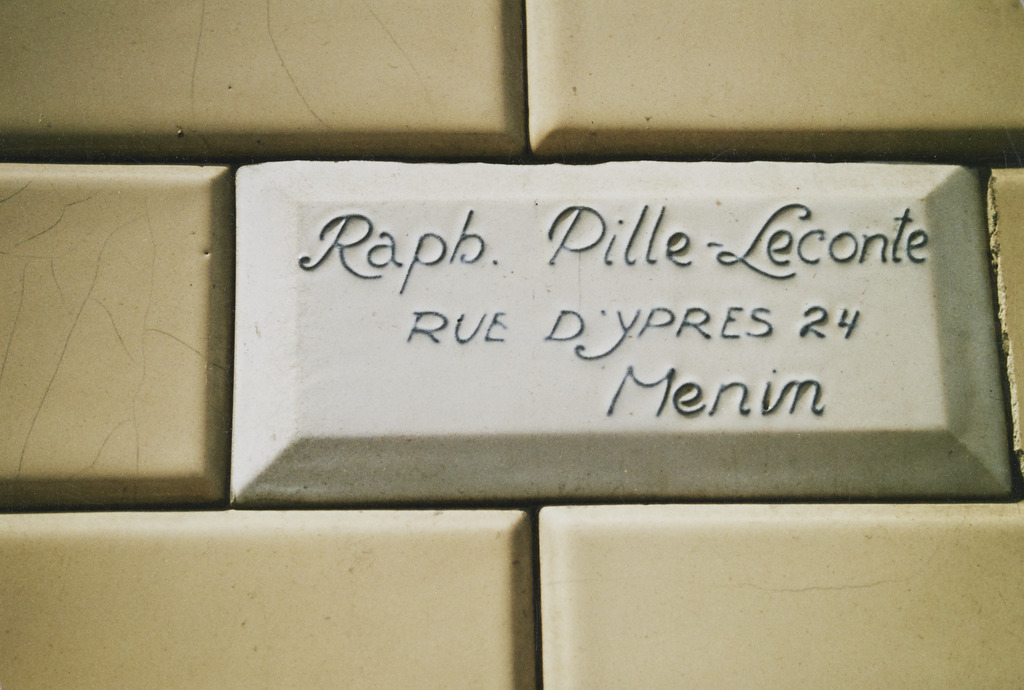 Raph. Pille-Leconte
RUE D'YPRES 24
Menin